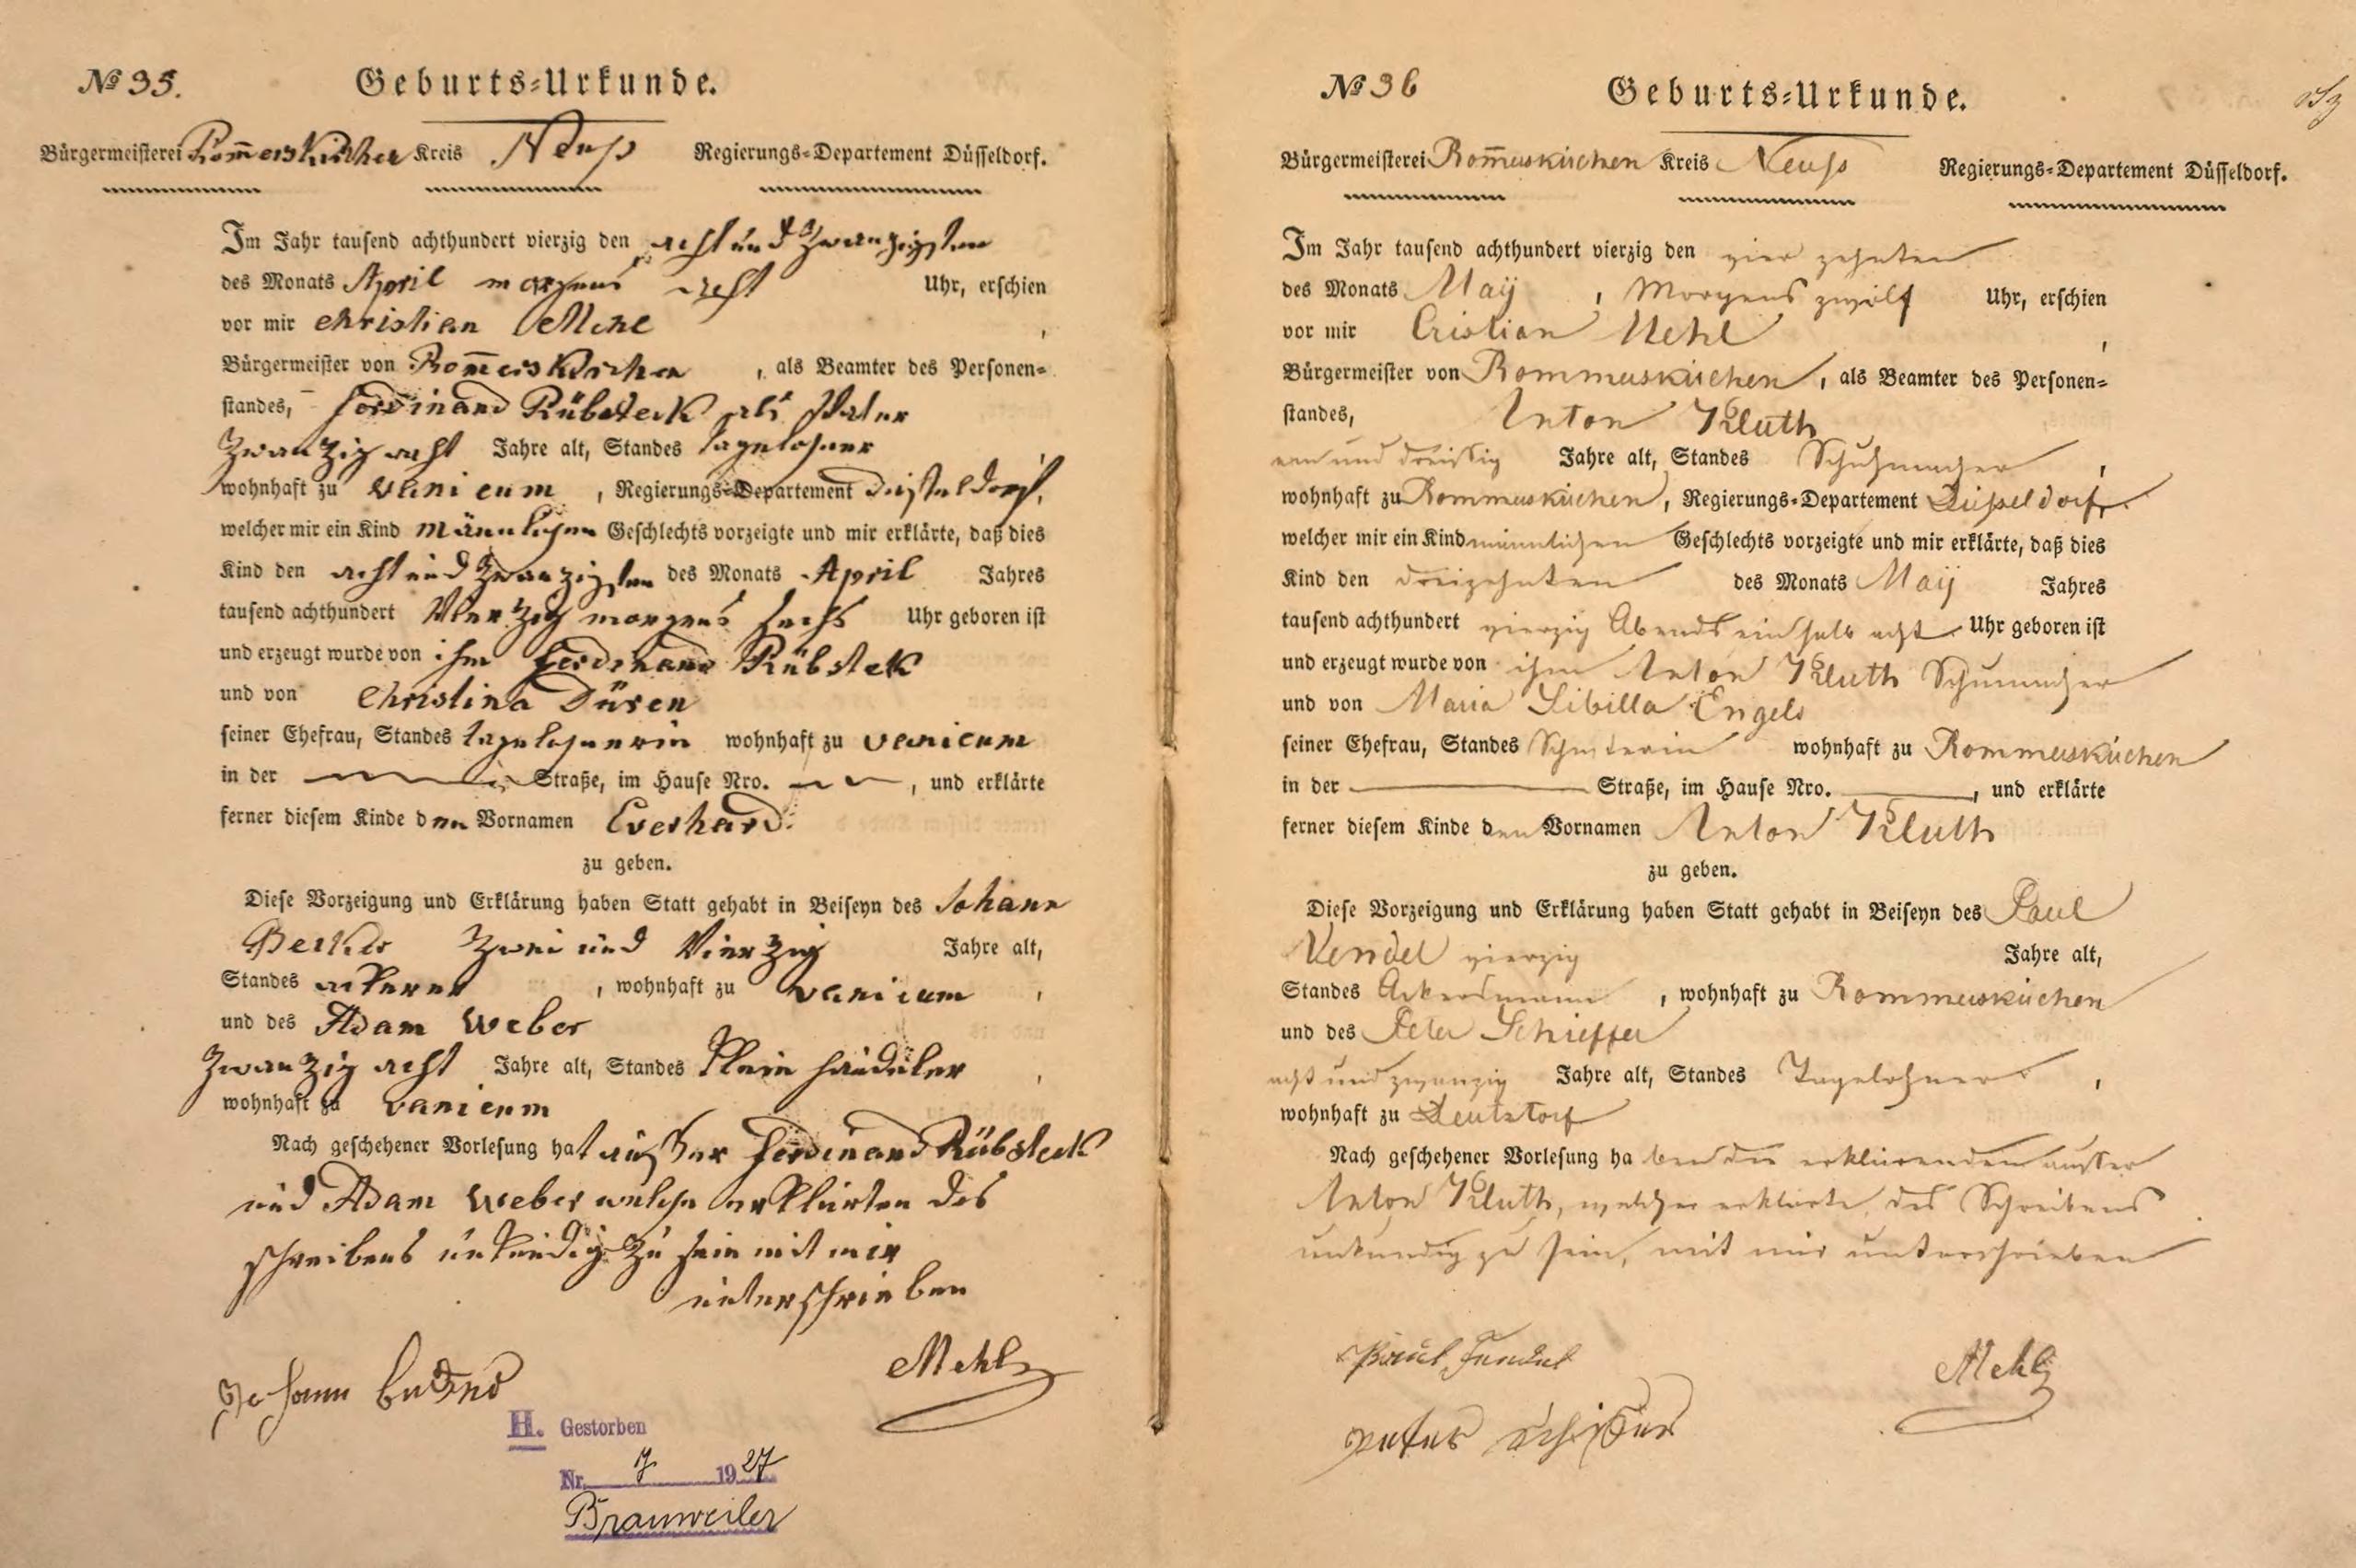 № 35. Geburts-Urkunde.
Bürgermeisterei Rom̅erskirchen Kreis Neuß Regierungs-Departement Düsseldorf.
Im Jahr tausend achthundert vierzig den acht und zwanzigsten
des Monats April morgens acht Uhr, erschien
vor mir Christian Mehl,
Bürgermeister von Rom̅erskirchen, als Beamter des Personen-
standes, Ferdinand Rübsteck als Vater
zwanzig acht Jahre alt, Standes tagelohner
wohnhaft zu vanicum, Regierungs-Departement Düsseldorf,
welcher mir ein Kind männlichen Geschlechts vorzeigte und mir erklärte, daß dies
Kind den acht und zwanzigsten des Monats April Jahres
tausend achthundert Vierzig morgens sechs Uhr geboren ist
und erzeugt wurde von ihm Ferdinand Rübsteck
und von Christina Düren
seiner Ehefrau, Standes tagelohnerin wohnhaft zu vanicum
in der Straße, im Hause Nro. , und erklärte
ferner diesem Kinde den Vornamen Everhard.
zu geben.
Diese Vorzeigung und Erklärung haben Statt gehabt in Beiseyn des Johann
zwei und Vierzig Jahre alt,
Standes ackerer, wohnhaft zu vanicum,
und des Adam Weber
zwanzig acht Jahre alt, Standes Klein händeler,
wohnhaft zu vanicum
Nach geschehener Vorlesung hat außer Ferdinand Rübsteck
und Adam Weber welche erklärten des
schreibens unkundig zu sein mit mir
unterschrieben
Johann
Mehl
H. Gestorben
Nr. 7 1927
Brauweiler
№ 36 Geburts-Urkunde.
Bürgermeisterei Rom̅erskirchen Kreis Neuss Regierungs-Departement Düsseldorf.
Im Jahr tausend achthundert vierzig den vier zehnten
des Monats May, Morgens zwölf Uhr, erschien
vor mir Cristian Mehl,
Bürgermeister von Rommerskirchen, als Beamter des Personen-
standes, Anton Kluth
ein und dreissig Jahre alt, Standes Schuhmacher,
wohnhaft zu Rommerskirchen, Regierungs-Departement Düsseldorf,
welcher mir ein Kind männlichen Geschlechts vorzeigte und mir erklärte, daß dies
Kind den dreizehnten des Monats May Jahres
tausend achthundert vierzig Abends ein halb acht Uhr geboren ist
und erzeugt wurde von ihm Anton Kluth Schumacher
und von Maria Sibilla Engels
seiner Ehefrau, Standes wohnhaft zu Rommerskirchen
in der Straße, im Hause Nro. , und erklärte
ferner diesem Kinde den Vornamen Anton Kluth
zu geben.
Diese Vorzeigung und Erklärung haben Statt gehabt in Beiseyn des Paul
vierzig Jahre alt,
Standes Ackersmann, wohnhaft zu Rommerskirchen
und des Peter Schieffer
acht und zwanzig Jahre alt, Standes Tagelohner,
wohnhaft zu
Nach geschehener Vorlesung haben die erklärenden ausser
Anton Kluth, welcher erklärte, des Schreibens
unkundig zu sein, mit mir unterschrieben
Mehl
Peter